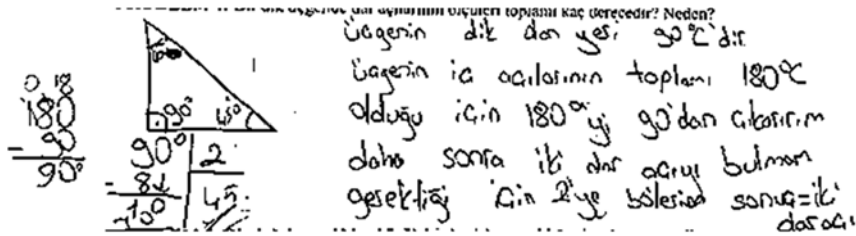 Bir dik üçgende dar açılarının ölçüleri toplamı kaç derecedir? Neden?
üçgenin dik dar yeri 90°C'dir
üçgenin iç açılarının toplamı 180°C
olduğu için 180°'yi 90'dan çıkarırım
daha sonra iki dar açıyı bulmam
gerektiği için 2'ye bölerim sonuç=iki
dar açı
0 18
180
- 90
90°
90° 45°
90° 2
- 8 45
10°